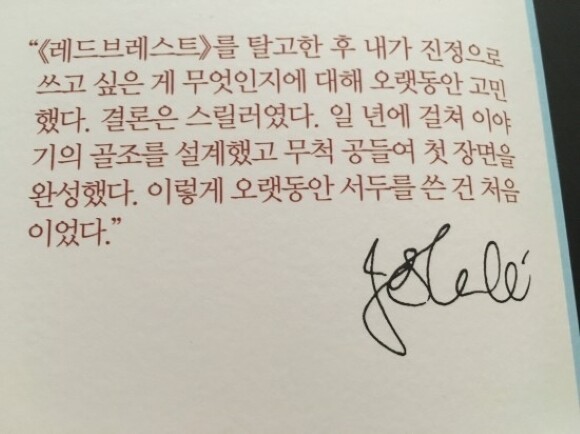 “《레드브레스트》를 탈고한 후 내가 진정으로
쓰고 싶은 게 무엇인지에 대해 오랫동안 고민
했다. 결론은 스릴러였다. 일 년에 걸쳐 이야
기의 골조를 설계했고 무척 공들여 첫 장면을
완성했다. 이렇게 오랫동안 서두를 쓴 건 처음
이었다.”